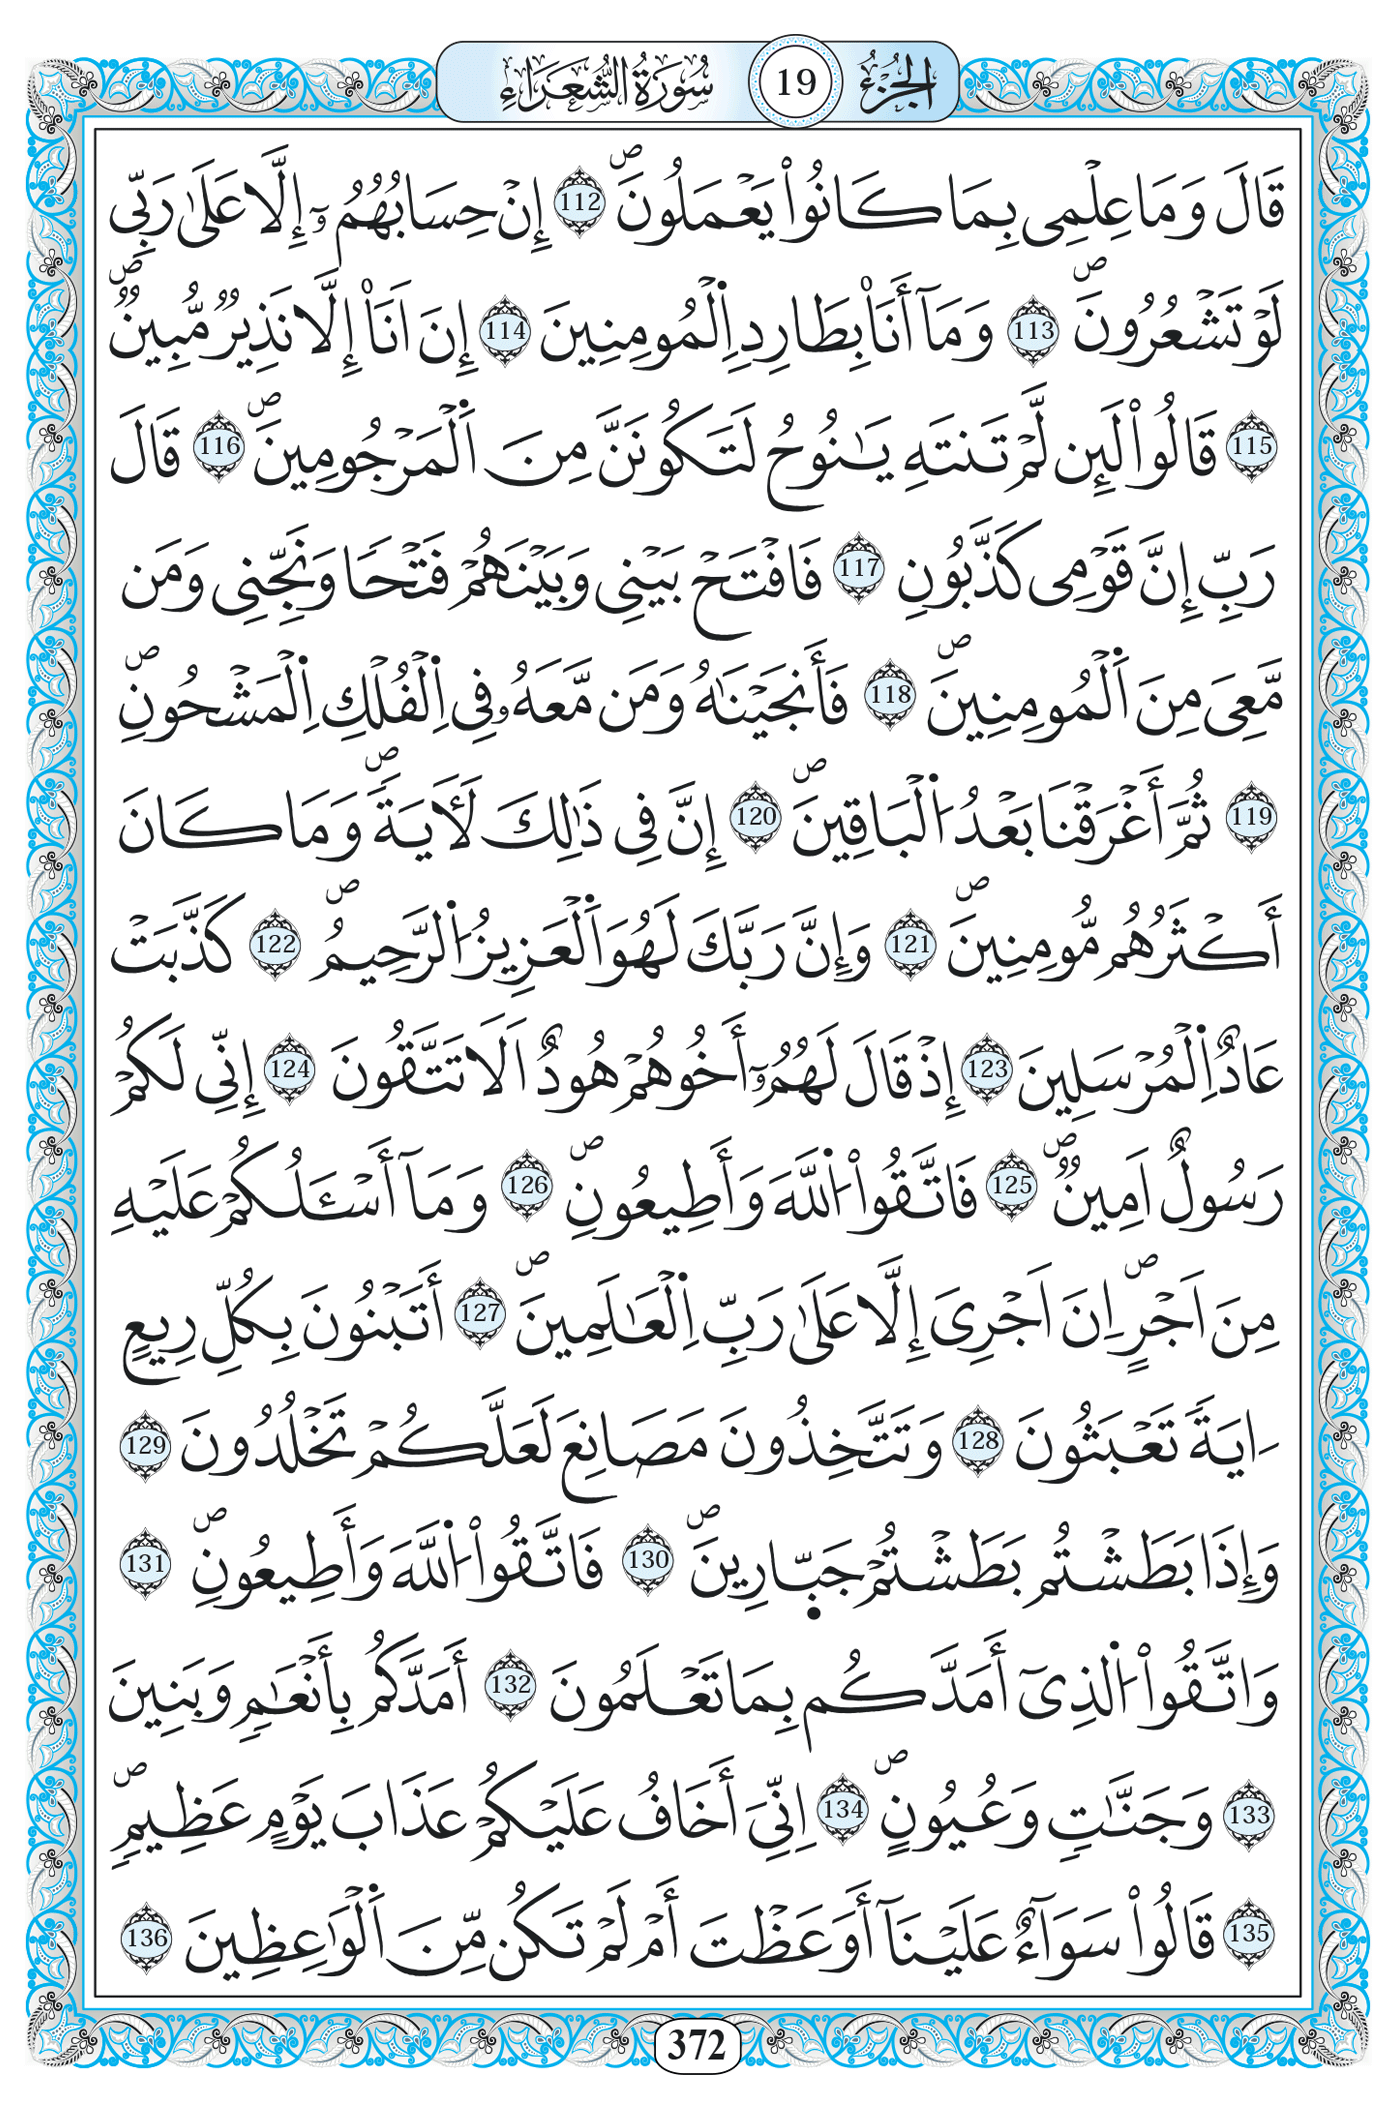 الجزء 19 سورة الشعراء
قَالَ وَمَا عِلْمِى بِمَا كَانُواْ يَعْمَلُونَۖ 112 إِنْ حِسَابُهُمُۥٓ إِلَّا عَلَىٰ رَبِّى
لَوْ تَشْعُرُونَۖ 113 وَمَآ أَنَا۠ بِطَارِدِ اِ۬لْمُومِنِينَ 114 إِنَ اَنَا۠ إِلَّا نَذِيرٞ مُّبِينٞۖ
115 قَالُواْ لَئِن لَّمْ تَنتَهِ يَٰنُوحُ لَتَكُونَنَّ مِنَ اَ۬لْمَرْجُومِينَۖ 116 قَالَ
رَبِّ إِنَّ قَوْمِى كَذَّبُونِ 117 فَافْتَحْ بَيْنِى وَبَيْنَهُمْ فَتْحاٗ وَنَجِّنِى وَمَن
مَّعِىَ مِنَ اَ۬لْمُومِنِينَۖ 118 فَأَنجَيْنَٰهُ وَمَن مَّعَهُۥ فِى اِ۬لْفُلْكِ اِ۬لْمَشْحُونِۖ
119 ثُمَّ أَغْرَقْنَا بَعْدُ اُ۬لْبَاقِينَۖ 120 إِنَّ فِى ذَٰلِكَ لَأٓيَةٗۖ وَمَا كَانَ
أَكْثَرُهُم مُّومِنِينَۖ 121 وَإِنَّ رَبَّكَ لَهُوَ اَ۬لْعَزِيزُ اُ۬لرَّحِيمُۖ 122 كَذَّبَتْ
عَادٌ اِ۬لْمُرْسَلِينَ 123 إِذْ قَالَ لَهُمُۥٓ أَخُوهُمْ هُودٌ اَلَا تَتَّقُونَ 124 إِنِّى لَكُمْ
رَسُولٌ اَمِينٞۖ 125 فَاتَّقُواْ اُ۬للَّهَ وَأَطِيعُونِۖ 126 وَمَآ أَسْـَٔلُكُمْ عَلَيْهِ
مِنَ اَجْرٍۖ اِنَ اَجْرِىَ إِلَّا عَلَىٰ رَبِّ اِ۬لْعَٰلَمِينَۖ 127 أَتَبْنُونَ بِكُلِّ رِيعٍ
ءَايَةٗ تَعْبَثُونَ 128 وَتَتَّخِذُونَ مَصَانِعَ لَعَلَّكُمْ تَخْلُدُونَ 129
وَإِذَا بَطَشْتُم بَطَشْتُمْ جَبّ۪ارِينَۖ 130 فَاتَّقُواْ اُ۬للَّهَ وَأَطِيعُونِۖ 131
وَاتَّقُواْ اُ۬لذِىٓ أَمَدَّكُم بِمَا تَعْلَمُونَ 132 أَمَدَّكُم بِأَنْعَٰمٖ وَبَنِينَ
133 وَجَنَّٰتٖ وَعُيُونٍۖ 134 اِنِّىَ أَخَافُ عَلَيْكُمْ عَذَابَ يَوْمٍ عَظِيمٖۖ
135 قَالُواْ سَوَآءٌ عَلَيْنَآ أَوَعَظْتَ أَمْ لَمْ تَكُن مِّنَ اَ۬لْوَٰعِظِينَ 136
372